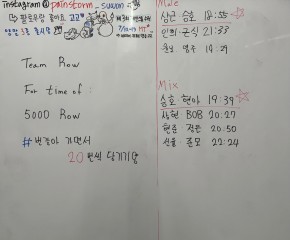 instagram@painstorm_suwon
팔로우합 좋아요
Team Row
For time of :
5000 Row
#번갈아 가면서
20번씩 당기기당
Male
상근 승호 18:55
인희·근식 21:33
Mix
승호·현아 19:39
상현 BOB 20:27
현준 정은 20:50
선율 준모 22:24